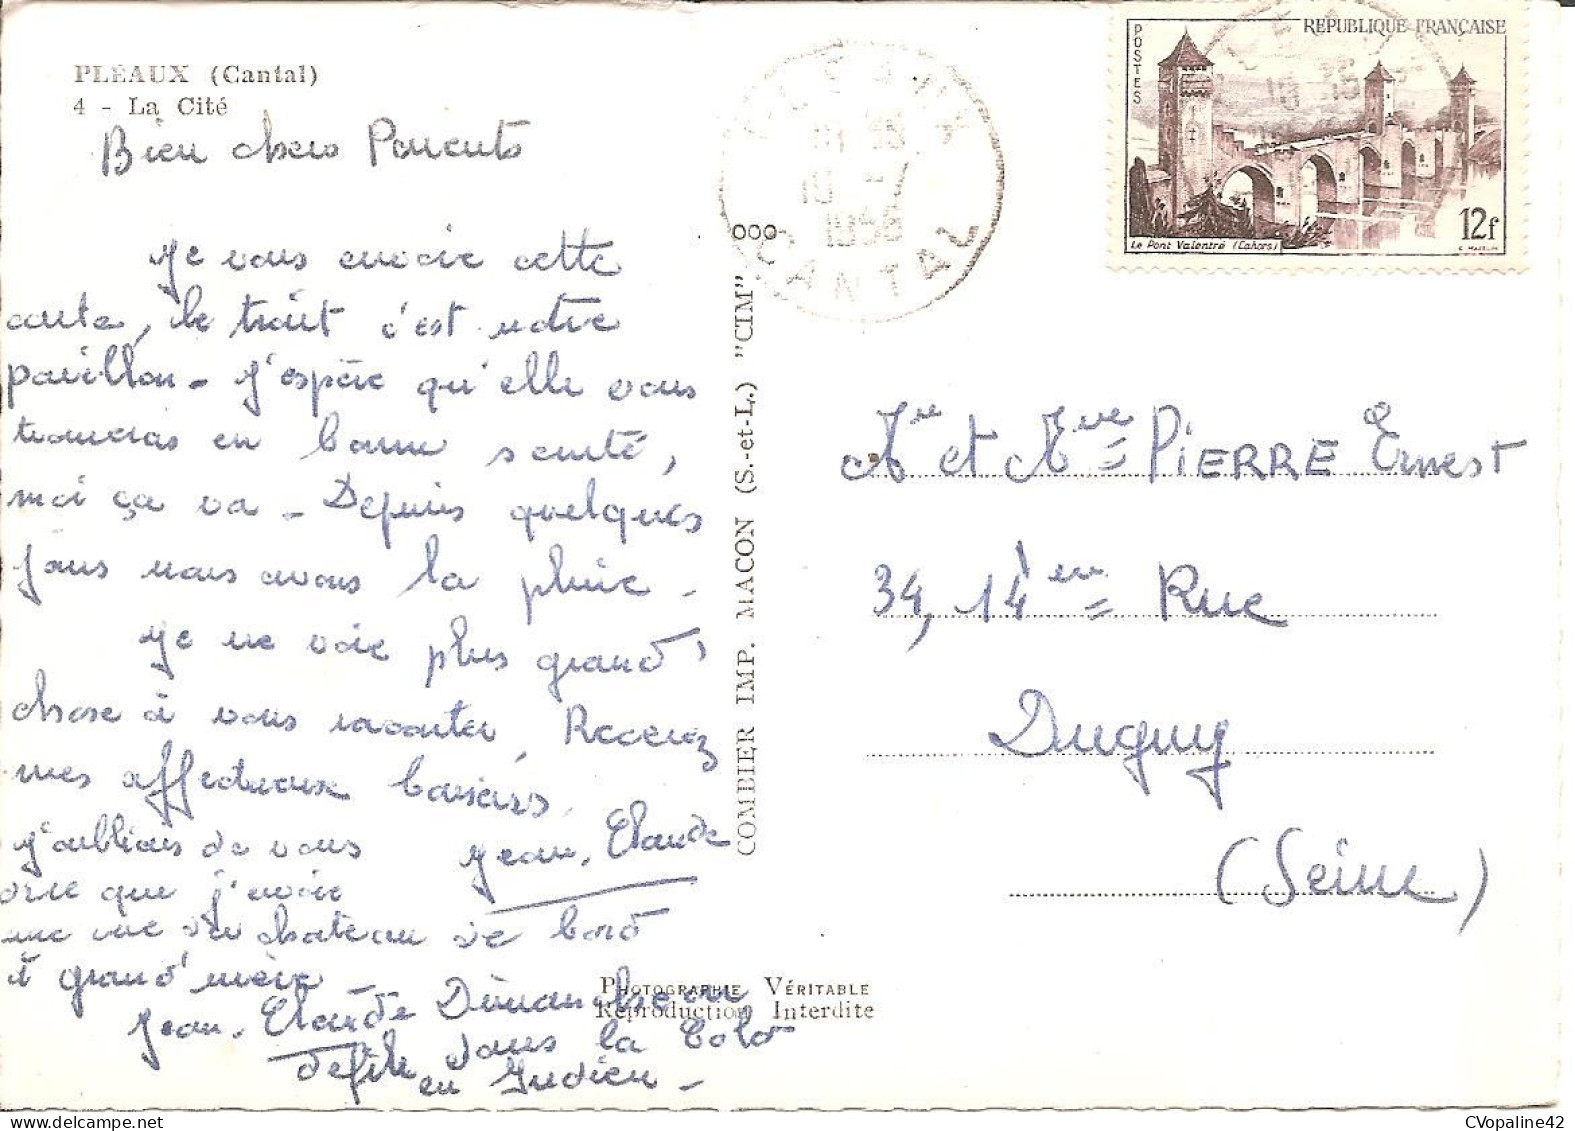 PLÉAUX (Cantal)
4 - La Cité
Bien chers Parents
Je vous envoie cette
carte, le trait c'est notre
pavillon - J'espère qu'elle vous
trouveras en bonne santé,
moi ça va - Depuis quelques
jours nous avons la pluie -
Je ne voie plus grand
chose à vous raconter, Recevez
mes affectueux baisers.
Jean. Claude
J'oubliais de vous
dire que j'envoie
une vue du chateau de
à grand'mère -
Jean. Claude Dimanche on
défile dans la Colo
en Indien -
COMBIER IMP. MACON (S.-et-L.) "CIM"
PHOTOGRAPHIE VÉRITABLE
Reproduction Interdite
000
CANTAL
POSTES
REPUBLIQUE FRANÇAISE
Le Pont Valentré (Cahors)
12f
Mr et Mme PIERRE Ernest
34, 14ème Rue
Dugny
(Seine)
CVopaline42